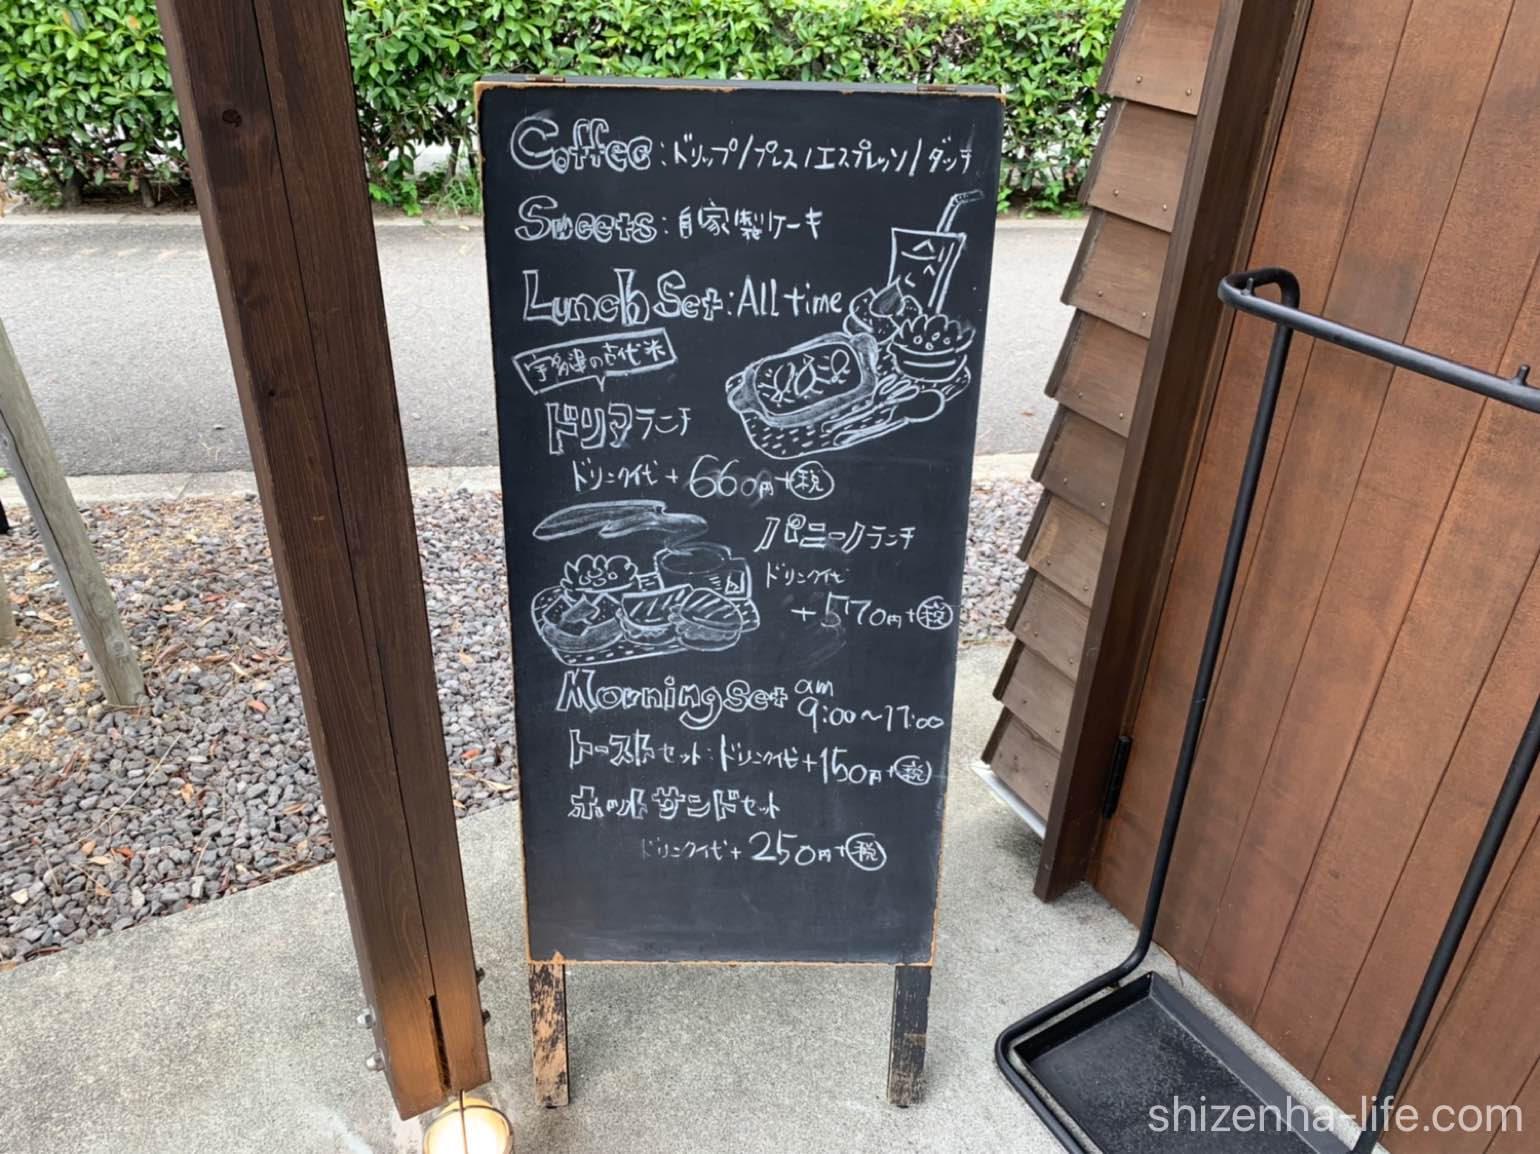 Coffee:ドリップ/プレス/エスプレッソ/ダッチ
Sweets:自家製ケーキ
Lunch Set:All time
宇多津の古代米
ドリアランチ
ドリンク代+660円+税
パニーノランチ
ドリンク代
+570円+税
Morning Set am
9:00~11:00
トーストセット:ドリンク代+150円+税
ホットサンドセット
ドリンク代+250円+税
shizenha-life.com